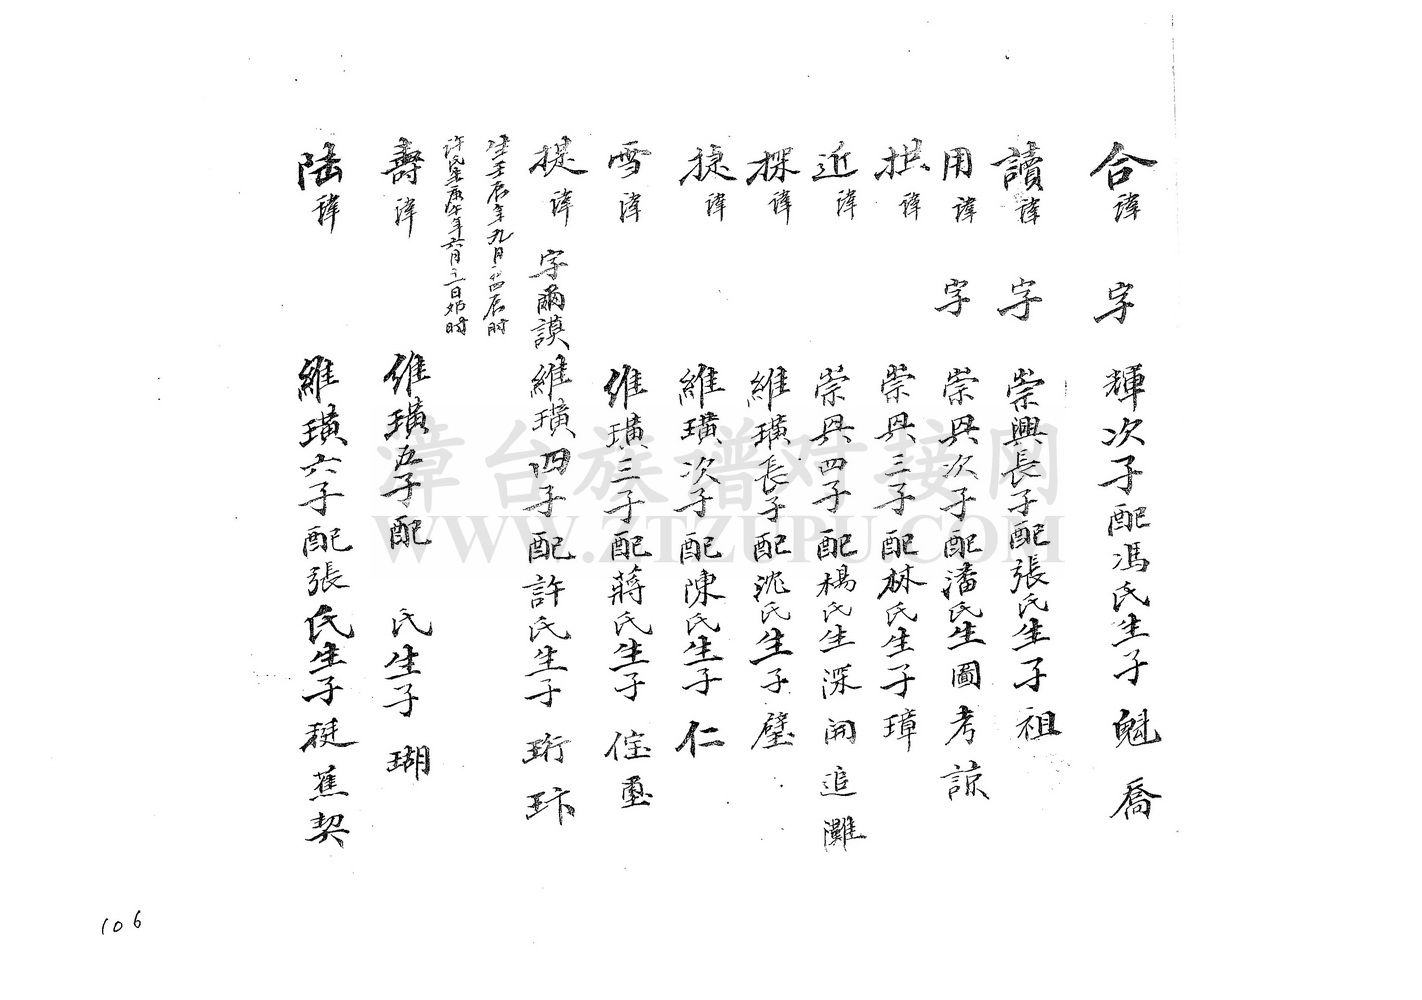 合諱 字 輝次子配馮氏生子 魁 喬
讀諱 字 崇興長子配張氏生子 祖
用諱 字 崇興次子配潘氏生 圖 考 諒
拱諱 崇興三子配林氏生子 璋
近諱 崇興四子配楊氏生 深 開 追 灘
探諱 維璜長子配沈氏生子 璧
捷諱 維璜次子配陳氏生子 仁
雪諱 維璜三子配蔣氏生子
提諱 字爾謨 維璜四子配許氏生子 珩 玶
生壬辰年九月 四辰时
許氏生庚午年六月 日卯时
壽諱 維璜五子配 氏生子 瑚
陆諱 維璜六子配張氏生子 蕉 契
106
漳台族谱对接网
WWW.ZTZUPU.COM